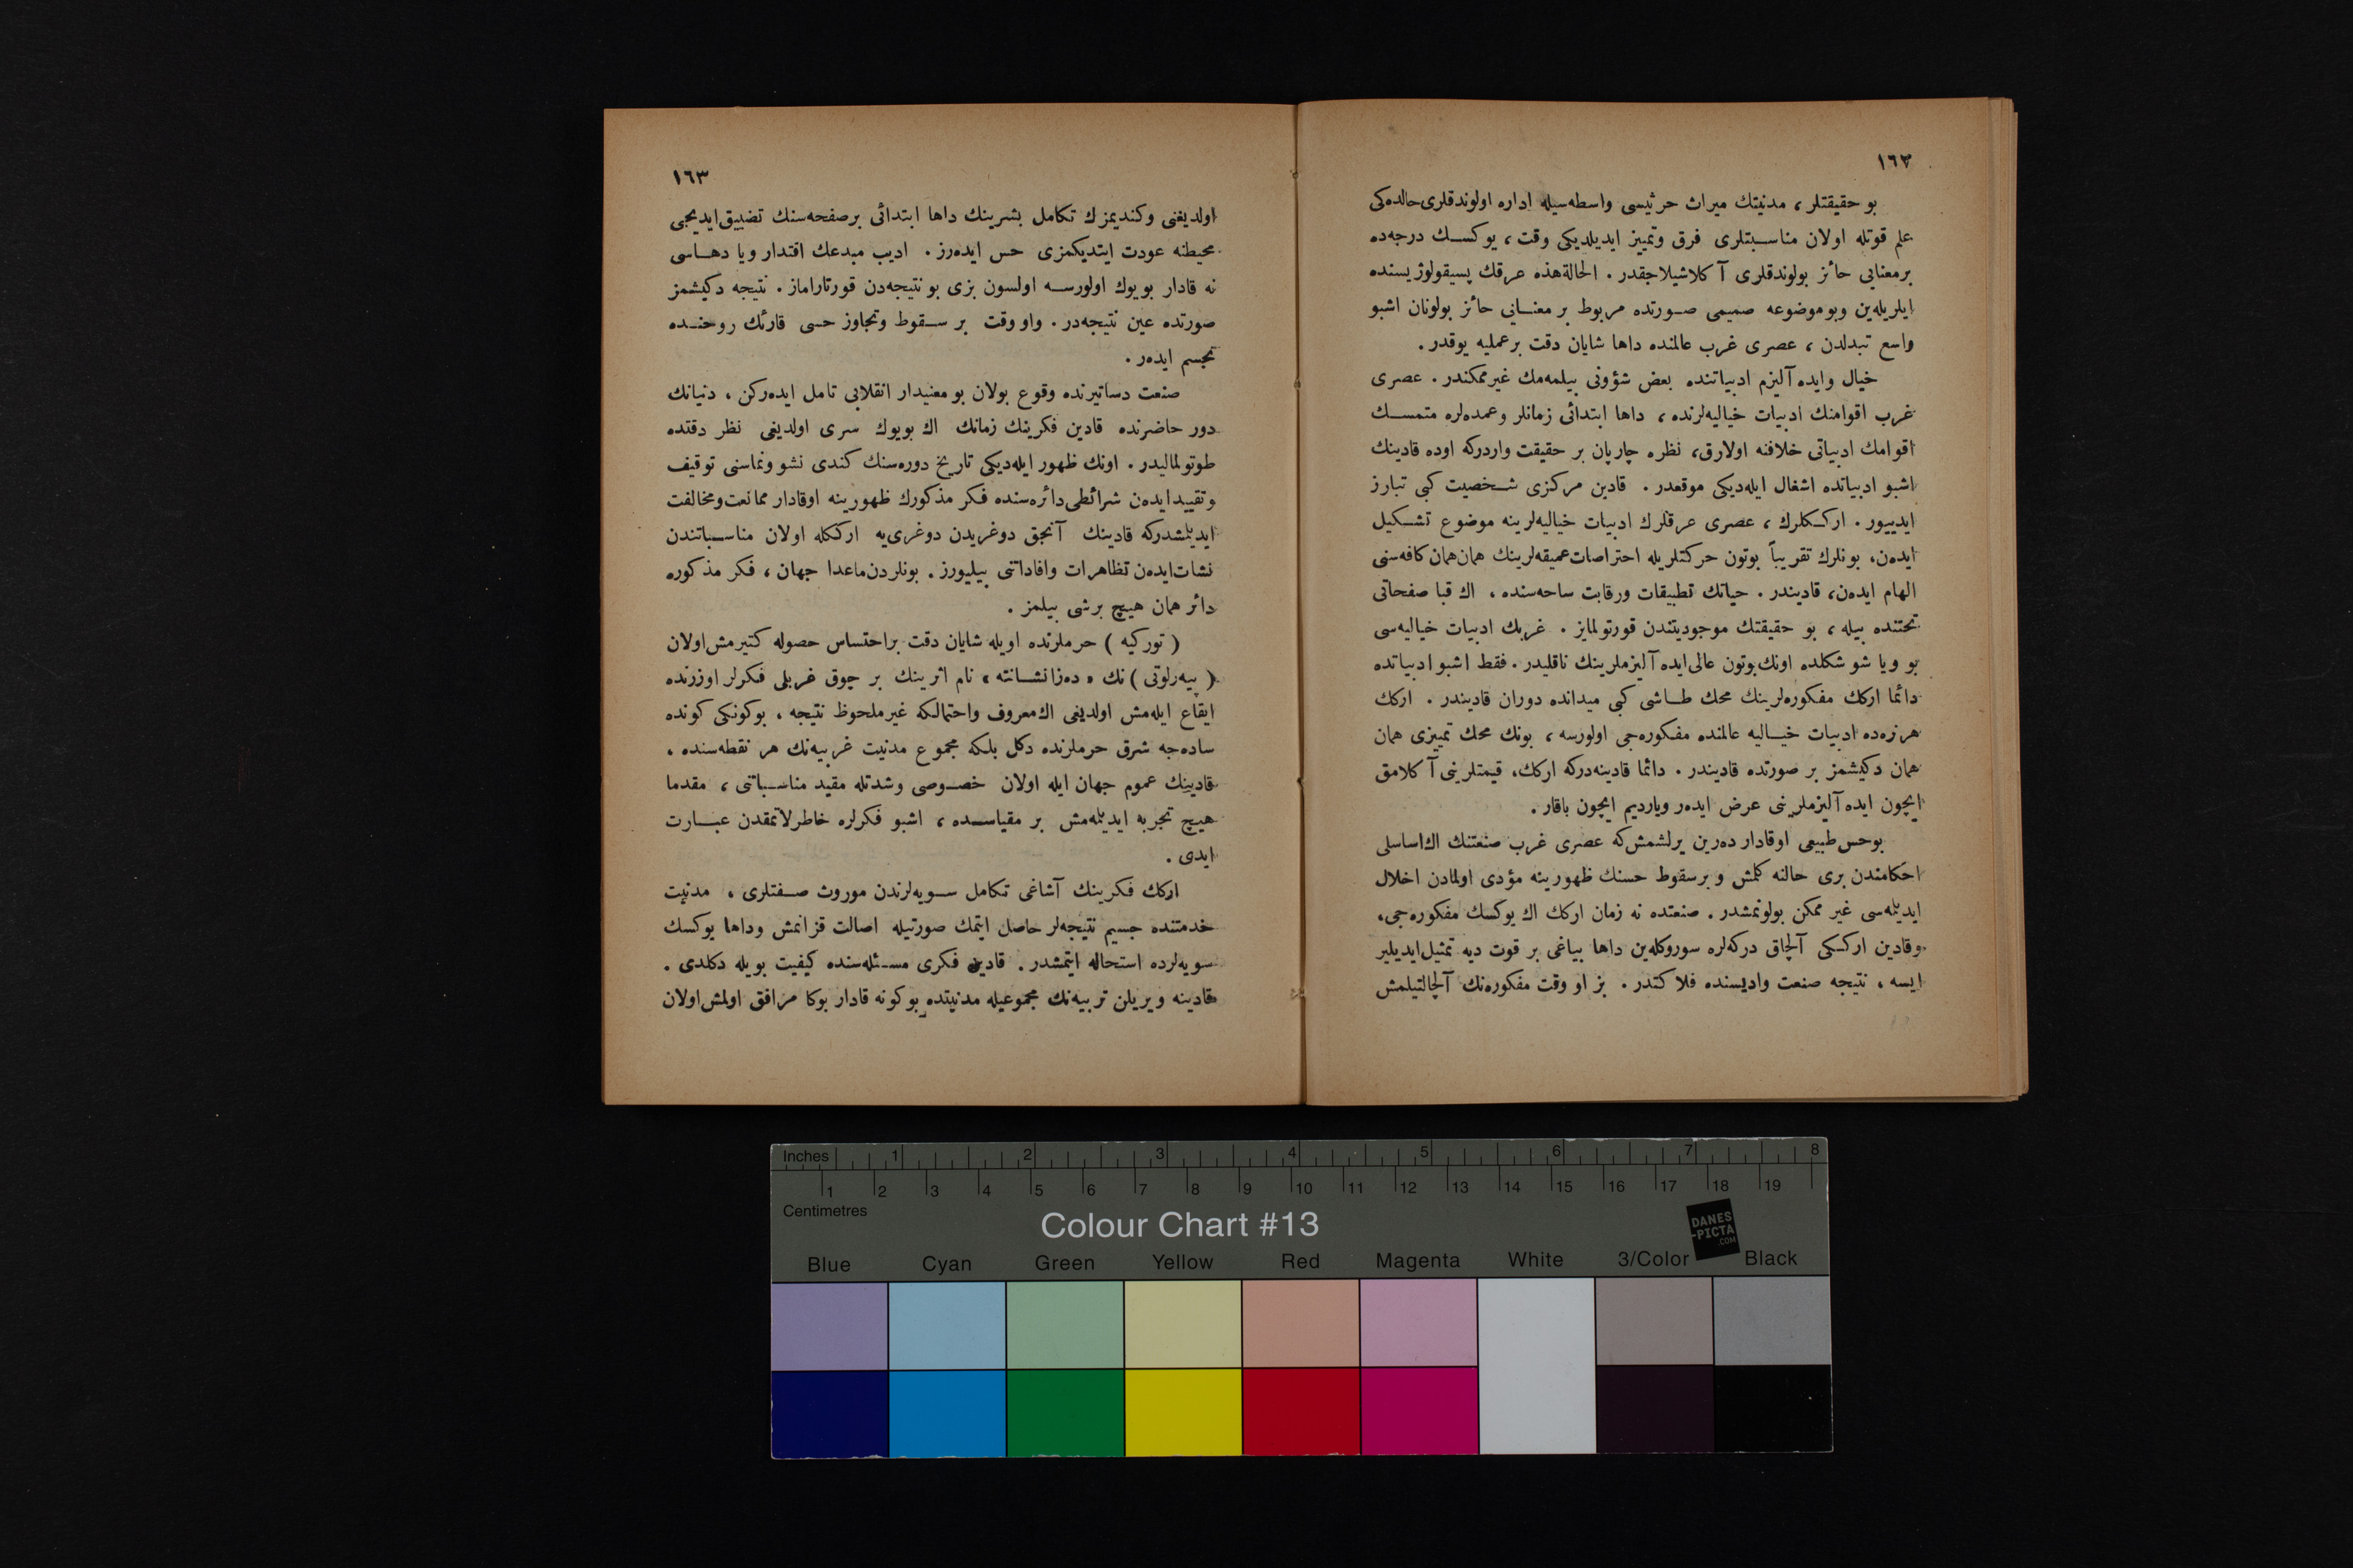 ١٦٢
بو حقیقتلر ، مدنیتك میراث حرثیسی واسطه‌سیله اداره اولوندقلری حالده‌کی
علم قوتله اولان مناسبتلری فرق وتمییز ایدیلدیکی وقت ، یوکسك درجه‌ده
برمعنایی حائز بولوندقلری آ کلاشیلاجقدر . الحالة هذه عرقك پسیقولوژیسنده
ایلریله‌ین وبو موضوعه صمیمی صورتده مربوط بر معنایی حائز بولونان اشبو
واسع تبدلدن ، عصری غرب عالمنده داها شایان دقت برعملیه یوقدر .
خیال وایده آلیزم ادبیاتنده بعض شؤونی بیلمه‌مك غیرممکندر . عصری
غرب اقوامنك ادبیات خیالیه‌لرنده ، داها ابتدائی زمانلر وعمده‌لره متمسك
اقوامك ادبیاتی خلافنه اولارق، نظره چارپان بر حقیقت واردرکه اوده قادینك
اشبو ادبیاتده اشغال ایله‌دیکی موقعدر . قادین مرکزی شخصیت کبی تبارز
ایدییور . ارککلرك ، عصری عرقلرك ادبیات خیالیه‌لرینه موضوع تشکیل
ایده‌ن، بونلرك تقریباً بوتون حرکتلریله احتراصات عمیقه‌لرینك همان همان کافه‌سنی
الهام ایده‌ن، قادیندر . حیاتك تطبیقات ورقابت ساحه‌سنده ، اك قبا صفحاتی
تحتنده بیله ، بو حقیقتك موجودیتندن قورتولمایز . غربك ادبیات خیالیه‌سی
بو ویا شو شکلده اونك بوتون عالی ایده آلیزملرینك ناقلیدر . فقط اشبو ادبیاتده
دائما ارکك مفکوره‌لرینك محك طاشی کبی میدانده دوران قادیندر . ارکك
هر نره‌ده ادبیات خیالیه عالمنده مفکوره‌جی اولورسه ، بونك محك تمییزی همان
همان دکیشمز بر صورتده قادیندر . دائما قادینه‌درکه ارکك، قیمتلرینی آ کلامق
ایچون ایده آلیزملرینی عرض ایده‌ر ویاردیم ایچون باقار .
بوحس طبیعی اوقادار ده‌رین یرلشمش‌که عصری غرب صنعتنك اك اساسلی
احکامندن بری حالنه کلمش و برسقوط حسنك ظهورینه مؤدی اولمادن اخلال
ایدیلمه‌سی غیر ممکن بولونمشدر . صنعتده نه زمان ارکك اك یوکسك مفکوره‌جی،
وقادین ارککی آلچاق درکه‌لره سوروکله‌ین داها بیاغی بر قوت دیه تمثیل ایدیلیر
ایسه ، نتیجه صنعت وادیسنده فلاکتدر . بز او وقت مفکوره‌نك آلچالتیلمش
١٦٣
اولدیغنی وکندیمزك تکامل بشرینك داها ابتدائی برصفحه‌سنك تضییق ایدیجی
محیطنه عودت ایتدیکمزی حس ایده‌رز . ادیب مبدعك اقتدار ویا دهاسی
نه قادار بویوك اولورسه اولسون بزی بو نتیجه‌دن قورتاراماز . نتیجه دکیشمز
صورتده عین نتیجه‌در . واو وقت بر سقوط وتجاوز حسی قارئك روحنده
تجسم ایده‌ر .
صنعت دساتیرنده وقوع بولان بو معنیدار انقلابی تامل ایده‌رکن ، دنیانك
دور حاضرنده قادین فکرینك زمانك اك بویوك سری اولدیغی نظر دقتده
طوتولمالیدر . اونك ظهور ایله‌دیکی تاریخ دوره‌سنك کندی نشو ونماسنی توقیف
وتقیید ایده‌ن شرائطی دائره‌سنده فکر مذکورك ظهورینه اوقادار ممانعت و مخالفت
ایدیلمشدرکه قادینك آنجق دوغریدن دوغری‌یه ارککله اولان مناسباتندن
نشات ایده‌ن تظاهرات وافاداتنی بیلیورز . بونلردن ماعدا جهان ، فکر مذکوره
دائر همان هیچ برشی بیلمز .
( تورکیه ) حرملرنده اویله شایان دقت براحتساس حصوله کتیرمش اولان
( پیه‌رلوتی ) نك « ده‌زانشانته » نام اثرینك بر چوق غربلی فکرلر اوزرنده
ایقاع ایله‌مش اولدیغی اك معروف واحتمالکه غیرملحوظ نتیجه ، بوکونکی کونده
ساده‌جه شرق حرملرنده دکل بلکه مجموع مدنیت غربیه‌نك هر نقطه‌سنده ،
قادینك عموم جهان ایله اولان خصوصی وشدتله مقید مناسباتنی ، مقدما
هیچ تجربه ایدیلمه‌مش بر مقیاسده ، اشبو فکرلره خاطرلاتمقدن عبارت
ایدی .
ارکك فکرینك آشاغی تکامل سویه‌لرندن موروث صفتلری ، مدنیت
خدمتنده جسیم نتیجه‌لر حاصل ایتمك صورتیله اصالت قزانمش وداها یوکسك
سویه‌لرده استحاله ایتمشدر . قادین فکری مسئله‌سنده کیفیت بویله دکلدی .
قادینه ویریلن تربیه‌نك مجموعیله مدنیتده بوکونه قادار بوکا مرافق اولمش اولان
Inches 1 2 3 4 5 6 7 8
1 2 3 4 5 6 7 8 9 10 11 12 13 14 15 16 17 18 19
Centimetres
Colour Chart #13
DANES
-PICTA
.COM
Blue Cyan Green Yellow Red Magenta White 3/Color Black